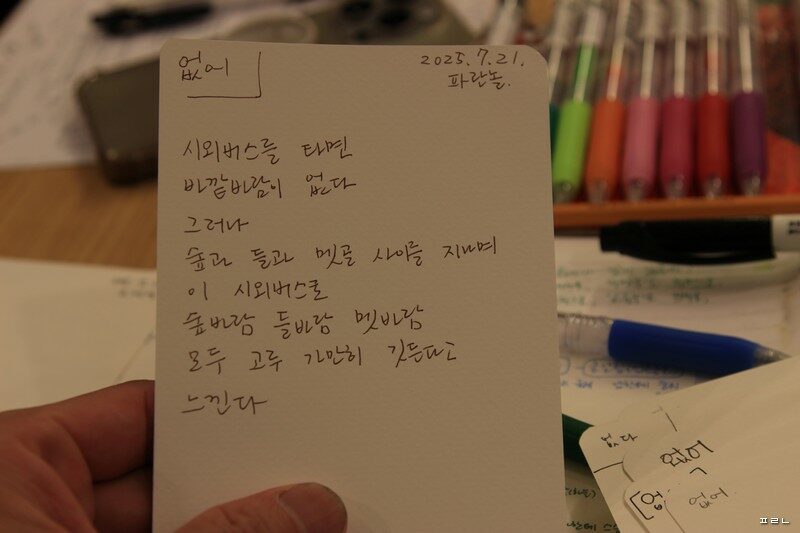 없어
2025.7.21.
파란놀.
시외버스를 타면
바깥바람이 없다
그러나
숲과 들과 멧골 사이를 지나며
이 시외버스로
숲바람 들바람 멧바람
모두 고루 가만히 깃든다고
느낀다
없다
없어.
ㅍㄹㄴ